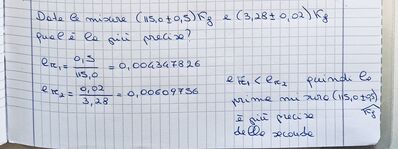 Date le misure (115,0 ± 0,5) Kg e (3,28 ± 0,02) Kg
qual è la più precisa?
er1 = 0,5 / 115,0 = 0,004347826
er2 = 0,02 / 3,28 = 0,00609756
er1 < er2 quindi la
prima misura (115,0 ± 0,5)
Kg
è più precisa
della seconda